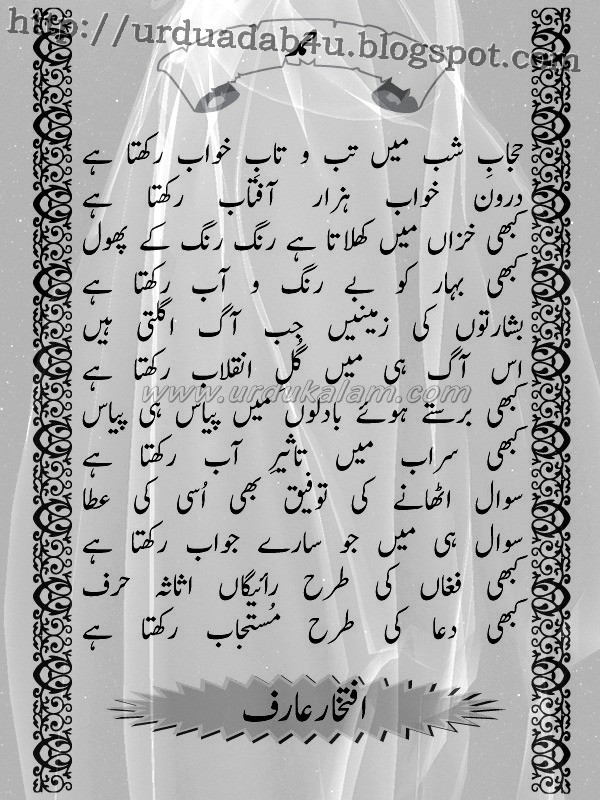 http://urduadab4u.blogspot.com
حمد
حجابِ شب میں تب و تابِ خواب رکھتا ہے
درون خواب ہزار آفتاب رکھتا ہے
کبھی خزاں میں کھلاتا ہے رنگ رنگ کے پھول
کبھی بہار کو بے رنگ و آب رکھتا ہے
بشارتوں کی زمینیں جب آگ اگلتی ہیں
اس آگ ہی میں گلِ انقلاب رکھتا ہے
www.urdukalam.com
کبھی برستے ہوئے بادلوں میں پیاس ہی پیاس
کبھی سراب میں تاثیرِ آب رکھتا ہے
سوال اٹھانے کی توفیق بھی اُسی کی عطا
سوال ہی میں جو سارے جواب رکھتا ہے
کبھی فغاں کی طرح رائیگاں اثاثہ حرف
کبھی دعا کی طرح مُستجاب رکھتا ہے
افتخار عارف